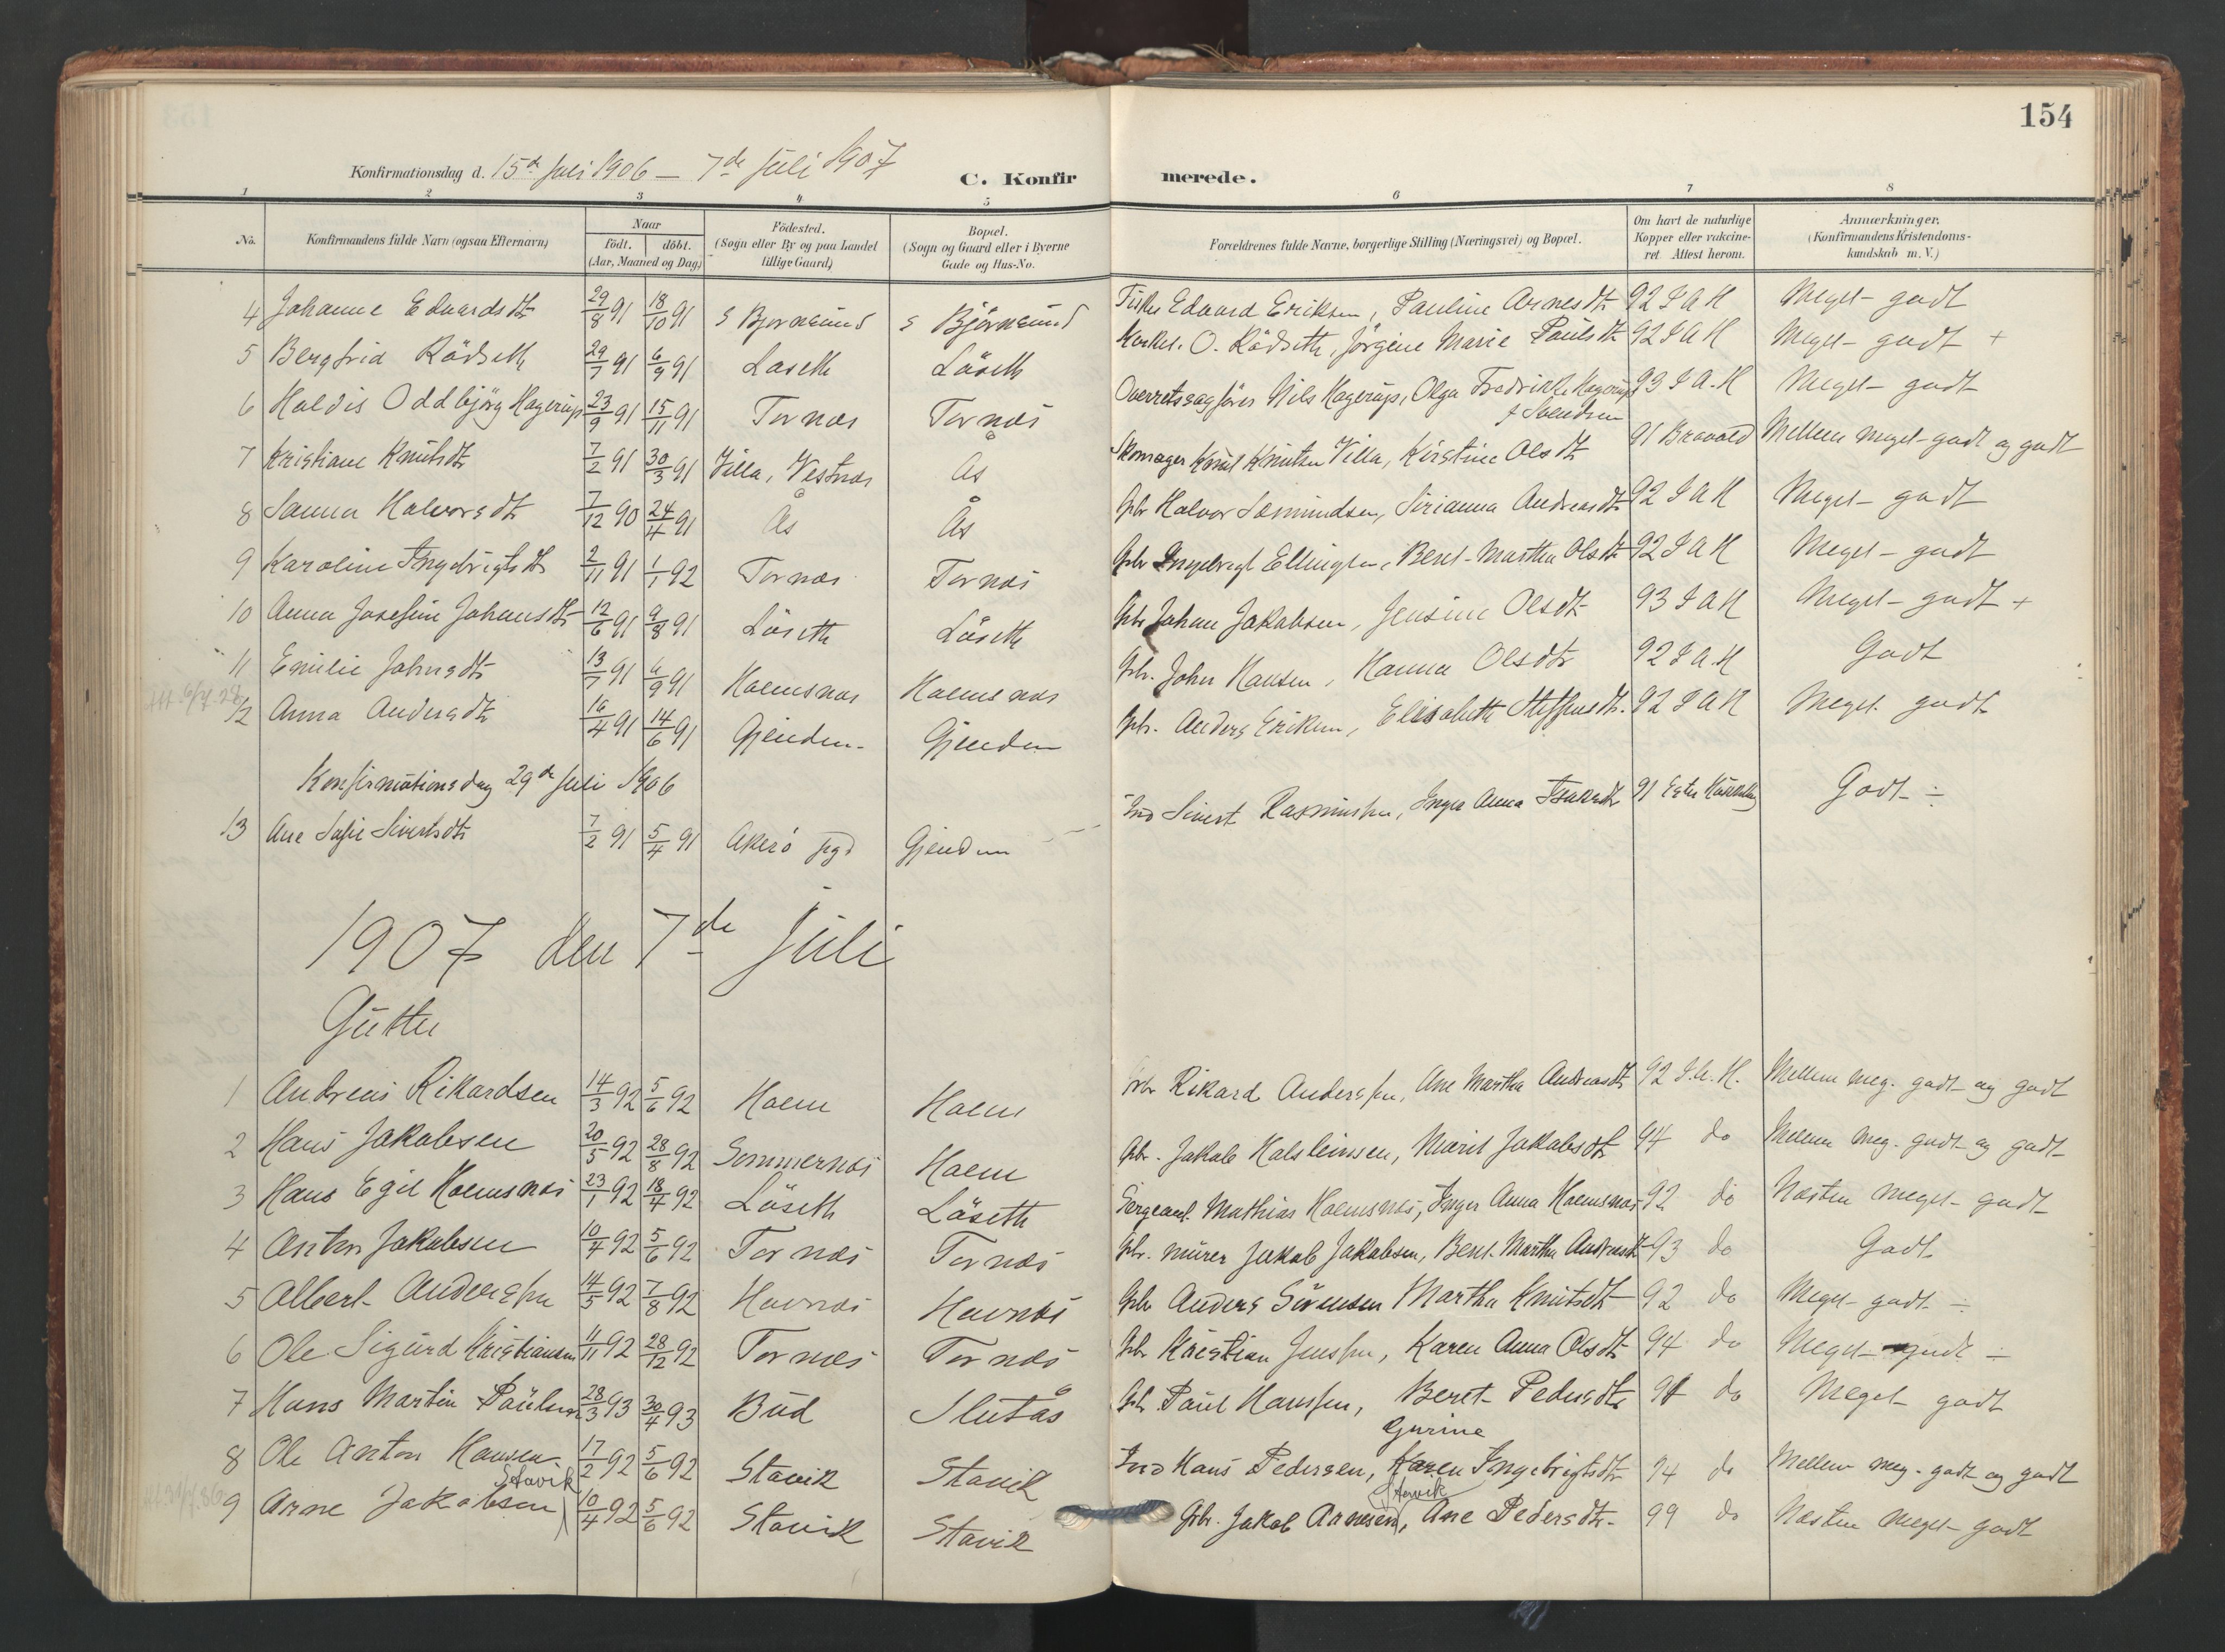 154
Konfirmationsdag d. 15de Juli 1906 – 7de Juli 1907
C. Konfirmerede.
1 2 3 4 5 6 7 8
No. Konfirmandens fulde Navn (ogsaa Efternavn) Naar födt. döbt. (Aar, Maaned og Dag) Födested. (Sogn eller By og paa Landet tillige Gaard) Bopæl. (Sogn og Gaard eller i Byerne Gade og Hus-No. Forældrenes fulde Navne, borgerlige Stilling (Næringsvei) og Bopæl. Om havt de naturlige Kopper eller vakcineret. Attest herom. Anmærkninger. (Konfirmandens Kristendomskundskab m. V.)
4 Johanne Edvardsdtr 29/8 91 18/10 91 s Bjornsund s Björnsund Fisker Edvard Eriksen, Pauline Arnesdtr 92 I A H Meget godt
5 Bergfrid Rödseth 29/7 91 6/9 91 Löseth Löseth Kirkes. O. Rödseth, Jörgine Marie Paulsdtr 92 I A H Meget godt +
6 Haldis Oddbjörg Hagerup 23/9 91 15/11 91 Tornes Tornæs Overretssagförer Nils Hagerup, Olga Fredrikke Hagerup f Svendsen 93 I A. H Meget godt
7 Kristiane Knutsdtr 7/2 91 30/3 91 Villa, Vestnæs Ås Skomager Knut Knutsen Villa, Kirstine Olsdtr 91 Bravold Mellem meget godt og godt
8 Sanna Halvorsdtr 7/12 90 24/4 91 Ås Ås Gbr Halvor Sæmundsen, Sirianna Andreasdtr 92 I A H Meget godt
9 Karoline Ingebrigtsdtr 2/11 91 1/1 92 Tornæs Tornæs Gbr Ingebrigt Ellingsen, Beret Martha Olsdtr 92 I A H Meget godt
10 Anna Josefine Johansdtr 12/6 91 9/8 91 Löseth Löseth Gbr Johan Jakobsen, Jensine Olsdtr 93 I A H Meget godt +
11 Emilie Johnsdtr 13/7 91 6/9 91 Holmsnæs Holmsnæs Gbr. John Hansen, Hanna Olsdtr 92 I A. H Godt
12 Anna Andersdtr 16/4 91 14/6 91 Gjendem Gjendem Gbr. Anders Eriksen, Elisabeth Steffensdtr. 92 I A H Meget godt
Konfirmationsdag 29de Juli 1906
13 Ane Sofie Sivertsdtr 7/2 91 5/4 91 Akerö pgd Gjendem Ind Sivert Rasmussen, Inger Anna Isaksdtr 91 Godt ÷
1907 den 7de Juli
Gutter
1 Andreas Rikardsen 14/3 92 5/6 92 Holm Holm Gbr Rikard Anderssen, Ane Martha Andreasdtr 92 I. A. H. Mellem meg. godt og godt
2 Hans Jakobsen 20/5 92 28/8 92 Sommernæs Holm Gbr. Jakob Halsteinsen, Marit Jakobsdtr 94 do Mellem meg. godt og godt
3 Hans Egil Holmsnæs 23/1 92 18/4 92 Löseth Löseth Sergeant. Mathias Holmsnæs, Inger Anna Holmsnæs 92 do Næsten meget godt
4 Anton Jakobsen 10/4 92 5/6 92 Tornæs Tornæs Gbr. murer Jakob Jakobsen, Beret Martha Andreasdtr 93 do Godt
5 Albert Anderssen 14/5 92 7/8 92 Havnæs Havnæs Gbr Anders Sörensen Martha Knutsdtr 92 do Meget godt ÷
6 Ole Sigurd Kristiansen 11/11 92 28/12 92 Tornæs Tornæs Gbr Kristian Jenssen, Karen Anna Olsdtr 94 do Meget godt ÷
7 Hans Martin Paulsen 28/3 93 30/4 93 Bud Slutås Gbr Paul Hanssen, Beret Pedersdtr do Meget godt
8 Ole Anton Hansen 17/2 92 5/6 92 Stavik Stavik Ind Hans Pedersen, Karen Gurine Ingebrigtsdtr 94 do Mellem meg. godt og godt
9 Arne Jakobsen Stavik 10/4 92 5/6 92 Stavik Stavik Gbr. Jakob Arnesen Stavik, Ane Pedersdtr. 99 do Næsten meget godt